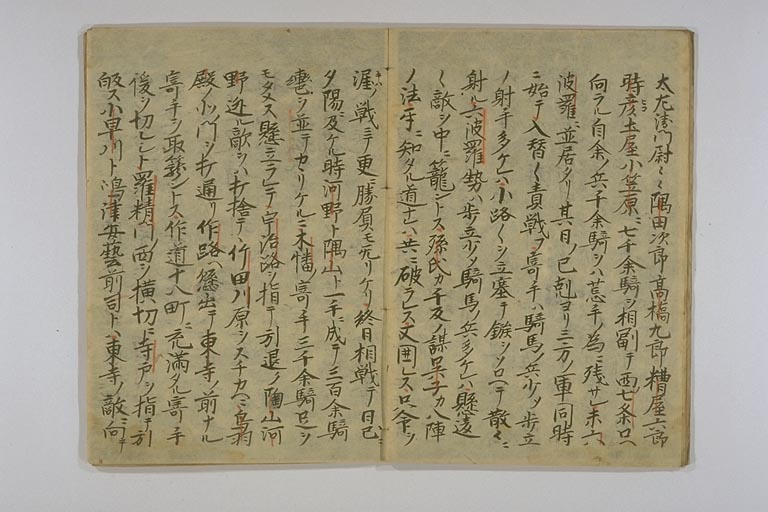 太左衛門尉〻隅田次郎高橋九郎糟屋六郎
時彦土屋小笠原ニ七千余騎ヲ相副テ西七条口ヘ
向ラル自余ノ兵千余騎ヲハ荒手ノ為ニ残サレ未六
波羅ニ並居タリ其日ノ巳剋ヨリ三方ノ軍同時
ニ始テ入替〻〻責戦フ寄手ハ騎馬ノ兵少ク歩立
ノ射手多ケレハ小路〻〻ヲ立塞テ鏃ヲソロヘテ散々ニ
射ル六波羅勢ハ歩立少ク騎馬ノ兵多ケレハ懸違
〻〻敵ヲ中ニ籠ントス孫氏カ千反ノ謀呉子カ八陣
ノ法互ニ知タル道ナレハ共ニ破ラレス又囲レスロ
渥ノ戦ニテ更ニ勝負モ無リケリ終日相戦テ日已ニ
夕陽ニ及ケル時河野ト隅山ト一手ニ成テ三百余騎
轡ヲ並テカヽリケルニ木幡ノ寄手三千余騎
モタメス懸立ラレテ宇治路ヲ指テ引退ク陶山河
野迯ル敵ヲハ打捨テ竹田川原ヲスチカヘニ鳥羽
殿ノ北ノ門ヲ打通リ作路ヘ懸出テ東寺ノ前ナル
寄手ヲ取籠ントス作道十八町ニ充満タル寄手
後ヲ切レシト羅精門ノ西ヲ横切ニ寺戸ヲ指テ引
皈ス小早川ト嶋津安藝前司トハ東寺ノ敵ニ向テ